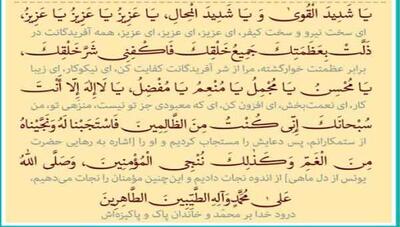 يَا شَدِيدَ الْقُوىٰ وَ يَا شَدِيدَ الْمِحالِ، يَا عَزِيزُ يَا عَزِيزُ يَا عَزِيزُ،
ای سخت نیرو و سخت کیفر، ای عزیز، ای عزیز، ای عزیز، همه آفریدگانت در
ذَلَّتْ بِعَظَمَتِكَ جَمِيعُ خَلْقِكَ، فَاكْفِنِى شَرَّ خَلْقِكَ،
برابر عظمتت خوارگشته، مرا از شر آفریدگانت کفایت کن، ای نیکوکار، ای زیبا
يَا مُحْسِنُ يَا مُجْمِلُ يَا مُنْعِمُ يَا مُفْضِلُ، يَا لَاإِلهَ إِلَّا أَنْتَ
کار، ای نعمت‌بخش، ای افزون کن، ای که معبودی جز تو نیست، منزهی تو، من
سُبْحانَكَ إِنِّى كُنْتُ مِنَ الظَّالِمِينَ، فَاسْتَجَبْنا لَهُ وَنَجَّيْناهُ
از ستمکارانم، پس دعایش را مستجاب کردیم و او را [اشاره به رهایی حضرت
مِنَ الْغَمِّ وَكَذٰلِكَ نُنْجِى الْمُؤْمِنِينَ، وَصَلَّى اللّٰهُ
یونس از دل ماهی] از اندوه نجات دادیم و این‌چنین مؤمنان را نجات می‌دهیم،
عَلىٰ مُحَمَّدٍ وَآلِهِ الطَّيِّبِينَ الطَّاهِرِينَ
درود خدا بر محمد و خاندان پاک و پاکیزه‌اش